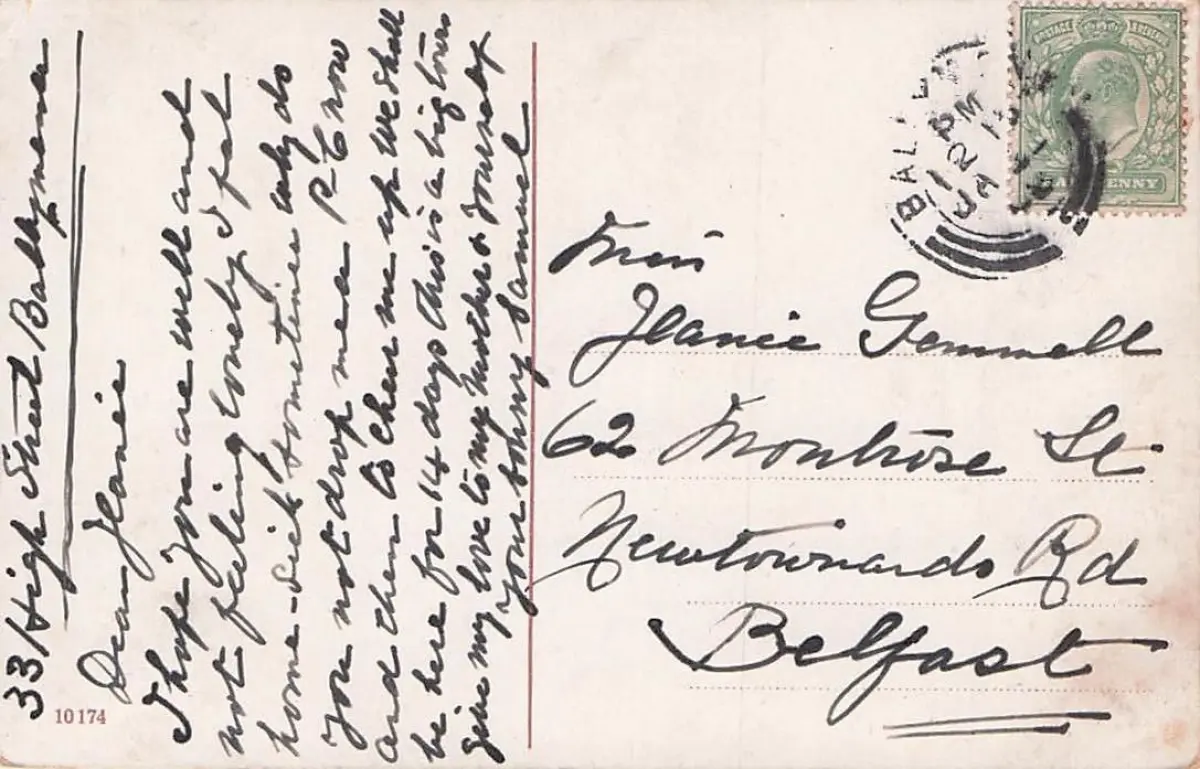 33 High Street Ballymena
Dear Jeanie
I hope you are well and
not feeling lonely I feel
home-sick sometimes why do
you not drop me a P-C now
and then to cheer me up we shall
be here for 14 days this is a big town
give my love to my Mother & yourself
your Johny Samuel
10174
POSTAGE REVENUE
HALFPENNY
BALLYM
PM
Miss
Jeanie Gemmell
62 Montrose St
Newtownards Rd
Belfast